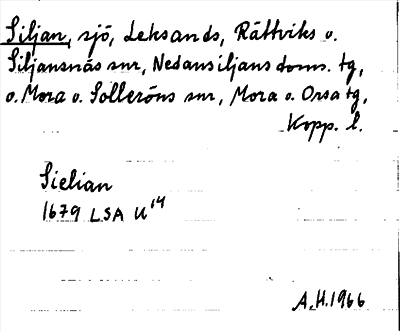 Siljan, sjö, Leksands, Rättviks o.
Siljansnäs snr, Nedansiljans doms. tg,
o. Mora o. Solleröns snr, Mora o. Orsa tg,
Kopp. l.
Sielian
1679 LSA U¹⁴
A.H. 1966